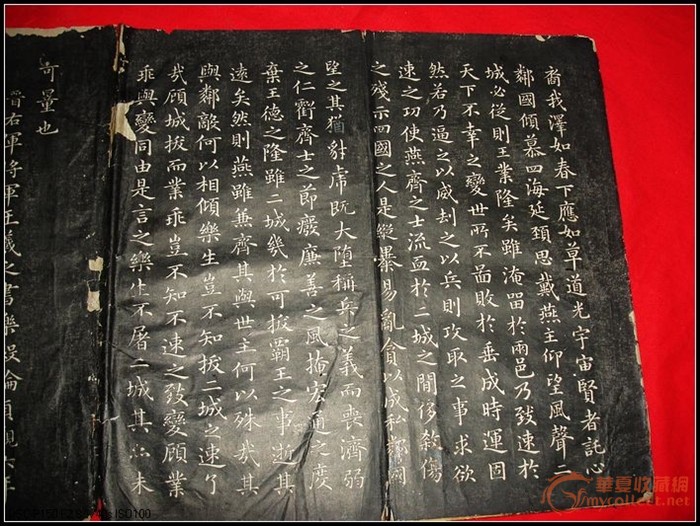 裔我澤如春下應如草道光宇宙賢者託心
鄰國傾慕四海延頸思戴燕主仰望風聲二
城必從則王業隆矣雖淹留於兩邑乃致速於
天下不幸之變世所不圖敗於垂成時運固
然若乃逼之以威劫之以兵則攻取之事求欲
速之功使燕齊之士流血於二城之間侈殺傷
之殘示四國之人是縱暴易亂貪以成私鄰國
望之其猶豺虎既大墮稱兵之義而喪濟弱
之仁虧齊士之節廢廉善之風掩宏通之度
棄王德之隆雖二城幾於可拔霸王之事逝其
遠矣然則燕雖兼齊其與世主何以殊哉其
與鄰敵何以相傾樂生豈不知拔二城之速了
哉顧城拔而業乖豈不知不速之致變顧業
乖與變同由是言之樂生不屠二城其亦未
可量也
晉右軍將軍王羲之書樂毅論貞觀六年
華夏收藏網
mycollect.net
ISO100